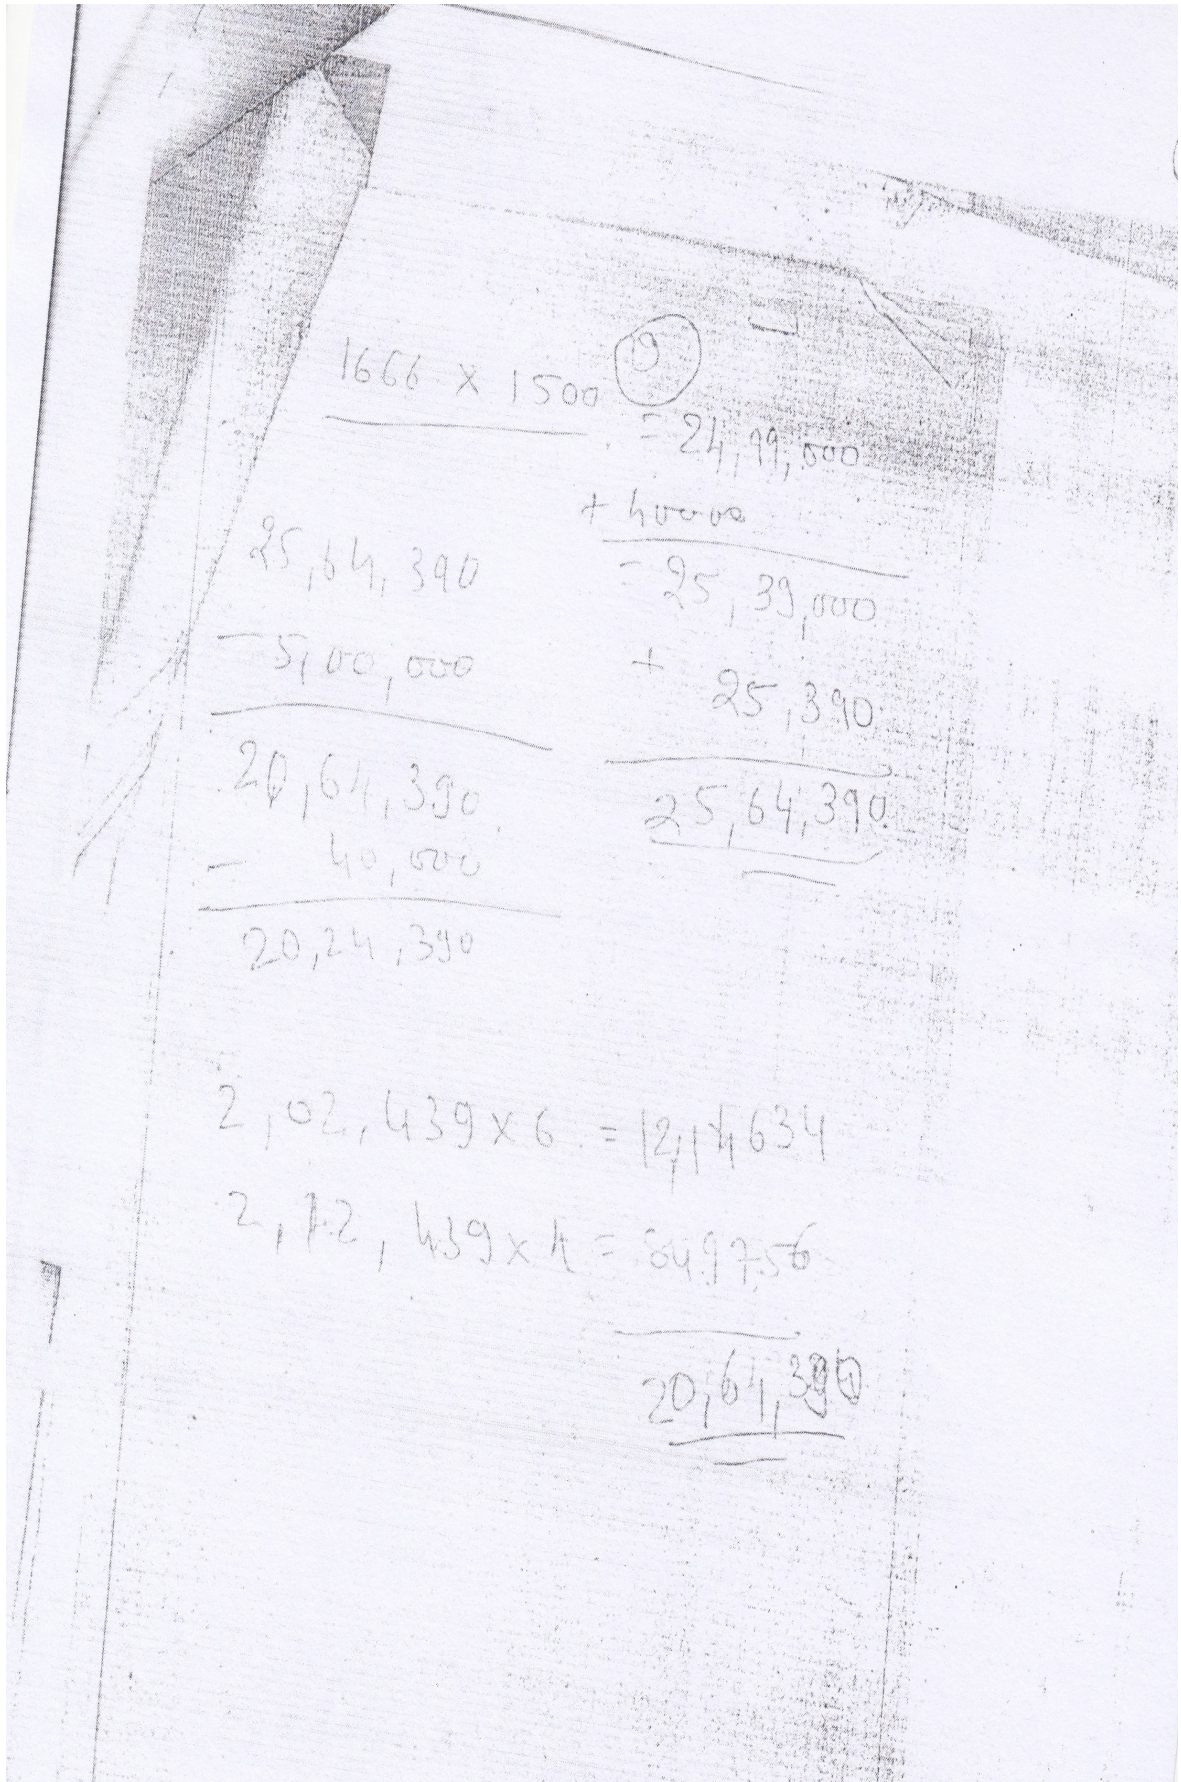 1666 x 1500
= 24,99,000
+ 40000
= 25,39,000
+ 25,390
25,64,390
25,64,390
- 5,00,000
20,64,390
- 40,000
20,24,390
2,02,439 x 6 = 12,14,634
2,12,439 x 4 = 849756
20,64,390